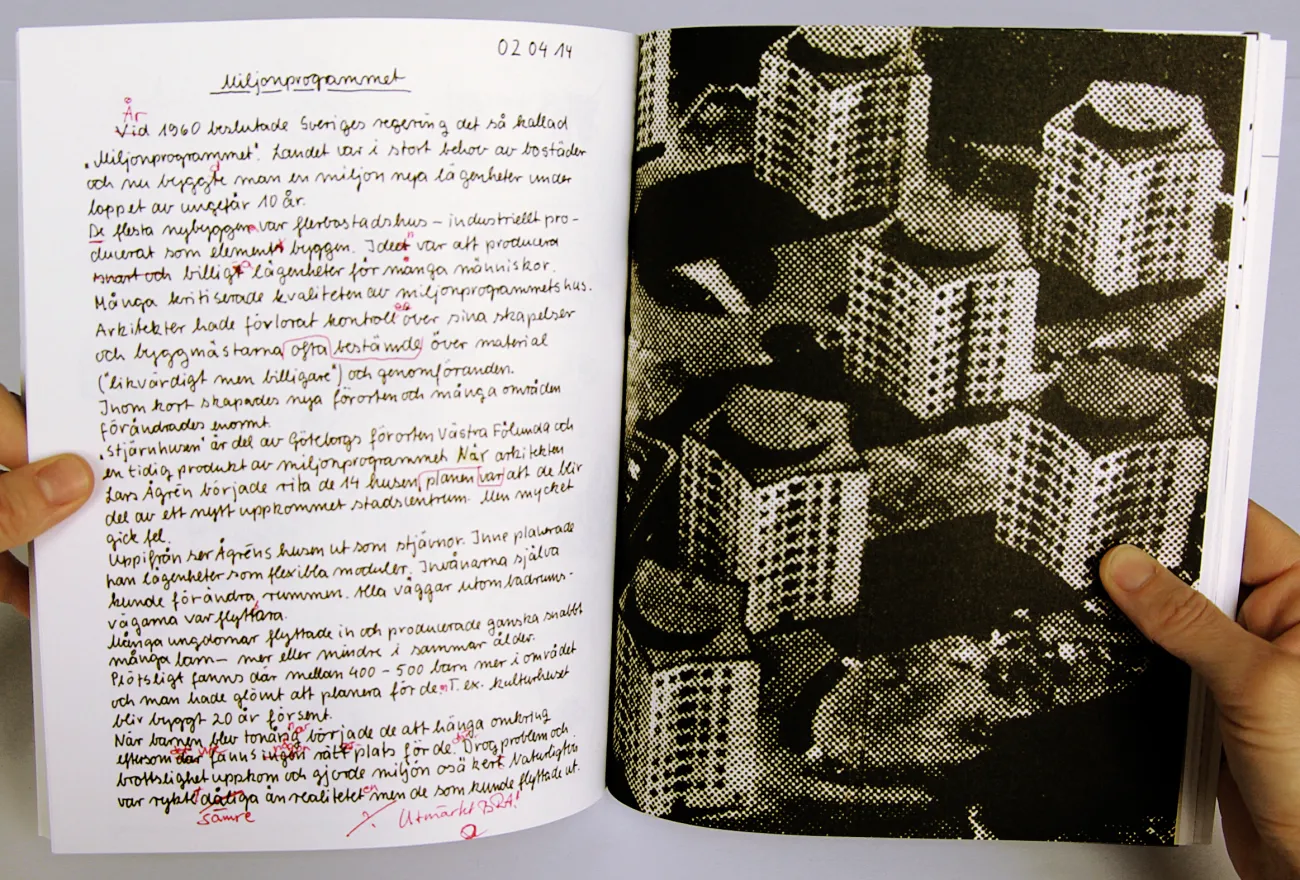 02 04 14
Miljonprogrammet
År
Vid 1960 beslutade Sveriges regering det så kallad
"Miljonprogrammet". Landet var i stort behov av bostäder
och nu bygggte man en miljon nya lägenheter under
loppet av ungefär 10 år.
De flesta nybyggen var flerbostadshus – industriellt pro-
ducerat som element byggen. Ideet var att producera
snart och billigt lägenheter för många människor.
Många kritiserade kvaliteten av miljonprogrammets hus.
Arkitekter hade förlorat kontroll över sina skapelser
och byggmästarna ofta bestämde över material
("likvärdigt men billigare") och genomföranden.
Inom kort skapades nya förorten och många områden
förändrades enormt.
"Stjärnhusen" är del av Göteborgs förorten Västra Fölunda och
en tidig produkt av miljonprogrammet. När arkitekten
Lars Ågren började rita de 14 husen planen var att de blir
del av ett nytt uppkommet stadscentrum. Men mycket
gick fel.
Uppifrån ser Ågréns husen ut som stjävnor. Inne planerade
han lägenheter som flexibla moduler. Invånarna själva
kunde förändra rummen. Alla väggar utom badrums-
vägarna var flyttbara.
Många ungdomar flyttade in och producerade ganska snabbt
många barn – mer eller mindre i sammar ålder.
Plötsligt fanns där mellan 400 – 500 barn mer i området
och man hade glömt att planera för den. T. ex. kulturhuset
bliv byggt 20 år för sent.
När barnen blev tonårig började de att hänga omkring
eftersom där fanns ingen rätt plats för de. Drogproblem och
brottslighet uppkom och gjorde miljön osäkert. Naturligtvis
var ryktet dåliga än realitetet men de som kunde flyttade ut.
sämre
Utmärkt BRA!